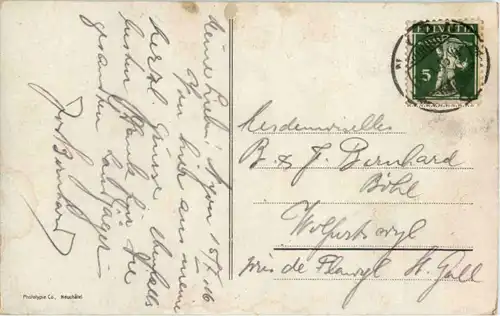 Nyon 15/7. 16
Meine Lieben!
Von hier aus meine
herzl. Grüsse ebenfalls
besten Dank für die
gesandten Landjäger
HELVETIA
5
Mesdemoiselles
B. & J. Bernhard
Bohl
près de Flawyl St. Gall
Phototypie Co., Neuchâtel